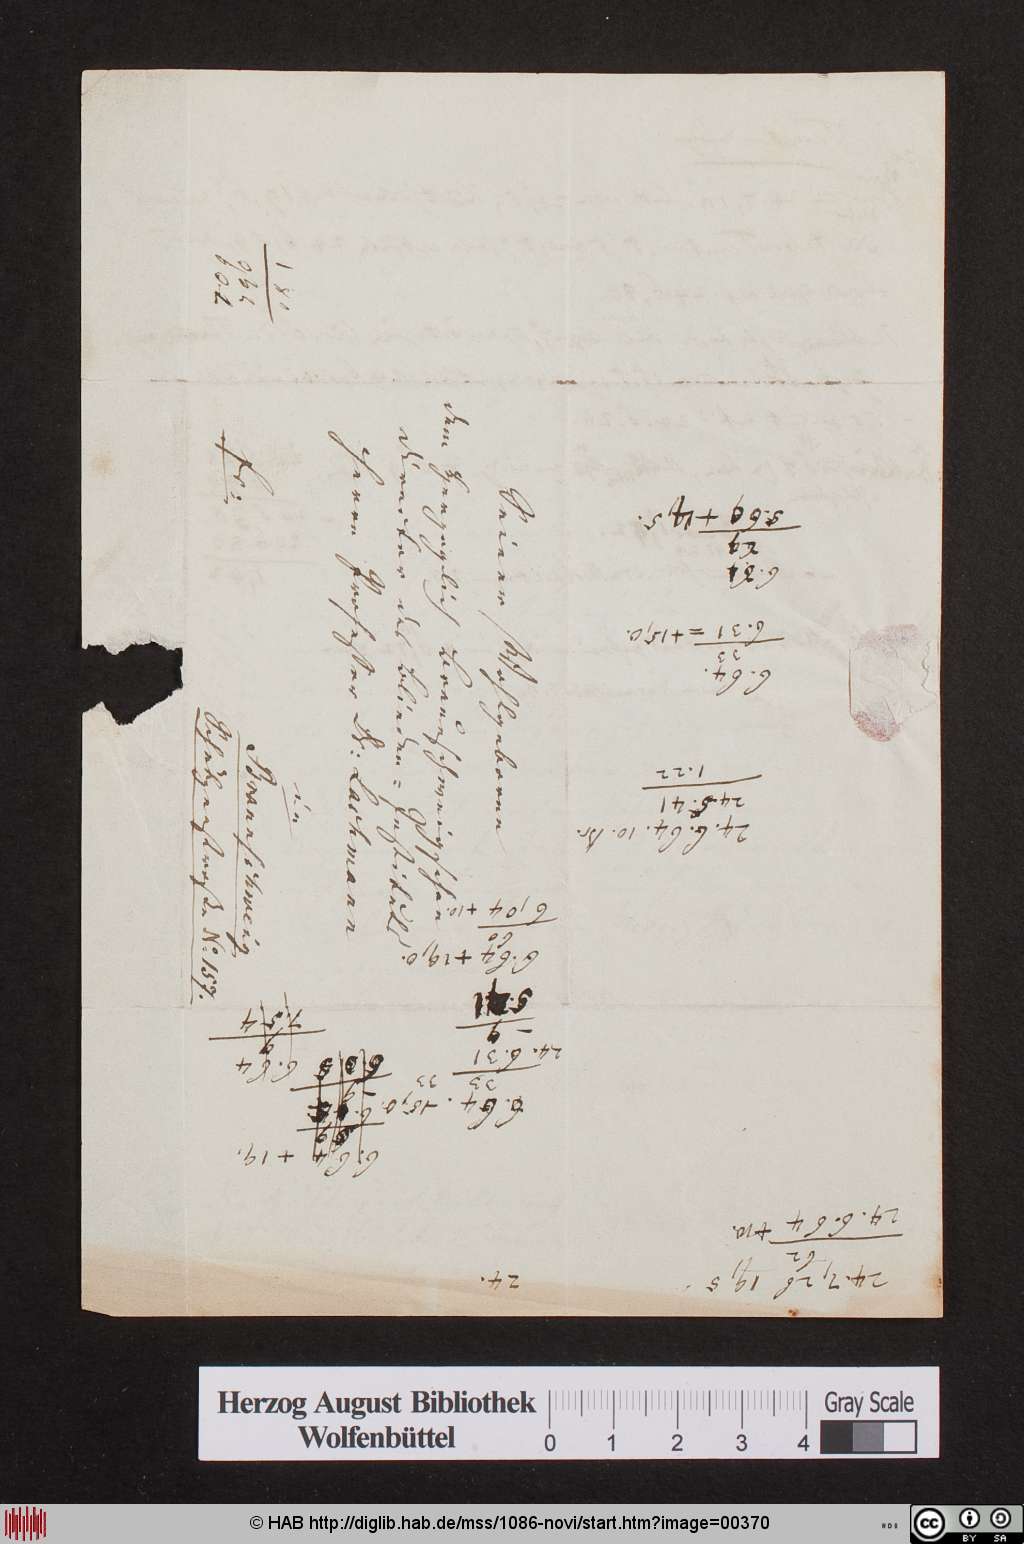 Seiner Wohlgeboren
dem Herzoglich Braunschweigschen
Director des Blinden-Instituts
Herrn Professor Dr: Lachmann
fr:
in
Braunschweig
N: 157.
181
6.31
29
5.69 + 19,5.
6.64.
33
6.31 = +15,0.
24.6.64.10. Br.
24.5.41
1.22
6.64 + 19,0.
60
6,04 + 10.
6.64. 15,0.
33
24.6.31
9
6.64
9
7.5.4
6.64 + 19.
24.
24.7,26 19,5
62
24.6.64 +10.
Herzog August Bibliothek
Wolfenbüttel
0 1 2 3 4
Gray Scale
© HAB http://diglib.hab.de/mss/1086-novi/start.htm?image=00370
cc BY SA